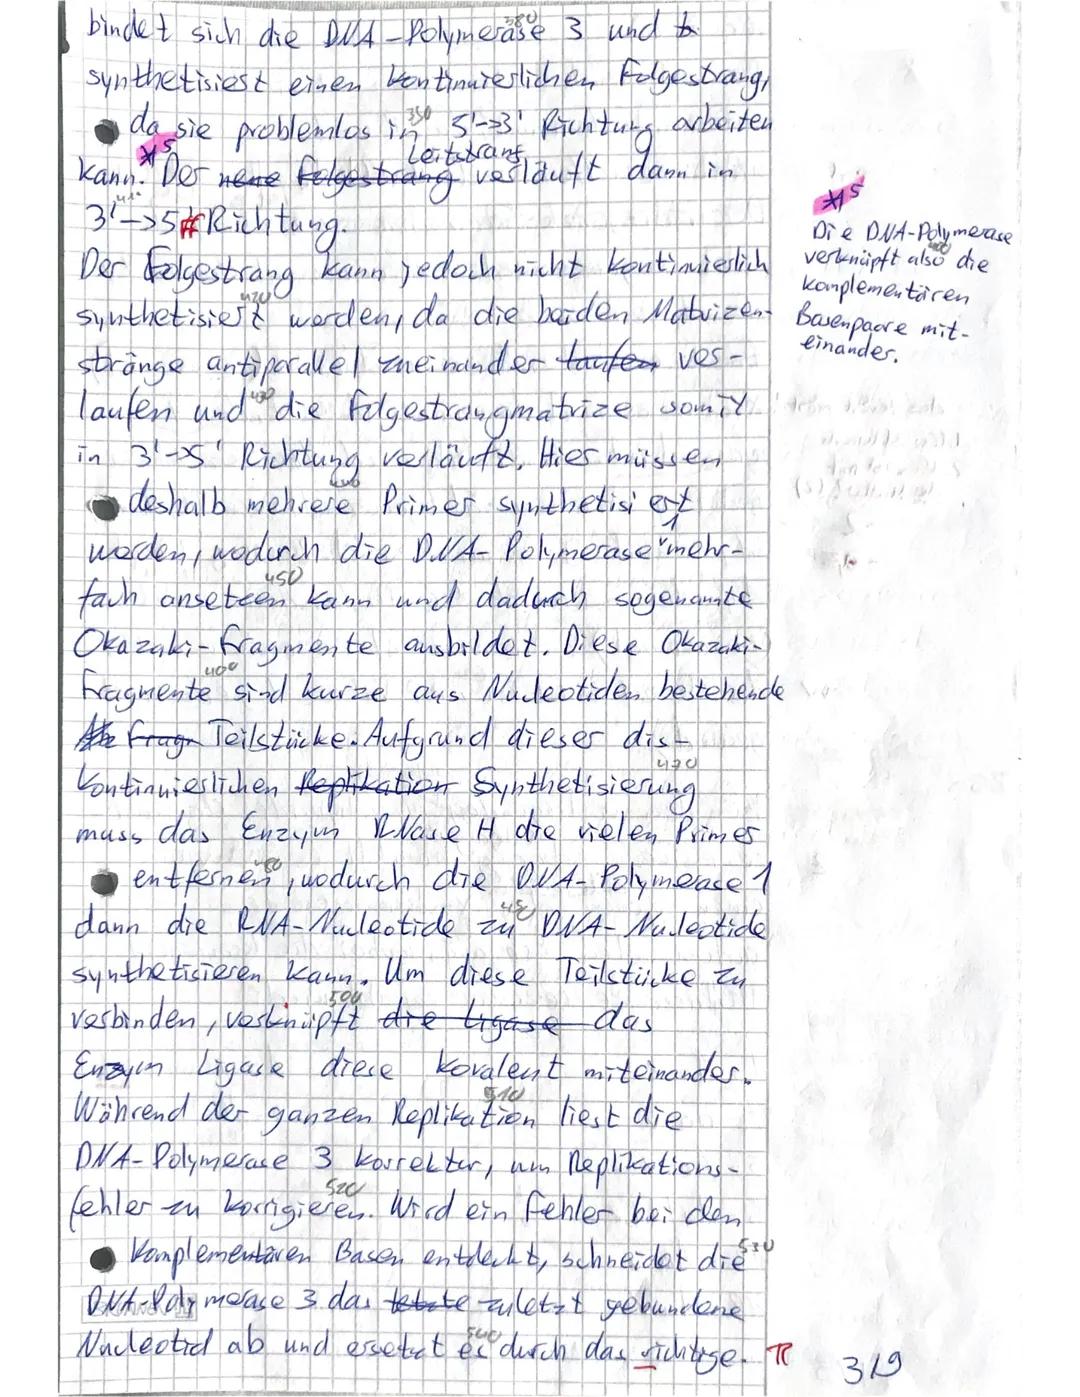 bindet sich die DNA-Polymerase 3 und
380
synthetisiert einen kontinuierlichen Folgestrang,
da sie problemlos in 5'->3' Richtung arbeiten
390
*5
Leitstrang
kann. Der neue Folgestrang verläuft dann in
3'->5' Richtung.
410
Der Folgestrang kann jedoch nicht kontinuierlich
420
synthetisiert werden, da die beiden Matrizen-
stränge antiparallel zueinander laufen ver-
laufen und die Folgestrangmatrize somit
430
in 3'->5' Richtung verläuft. Hier müssen
440
deshalb mehrere Primer synthetisiert
1
werden, wodurch die DNA-Polymerase mehr-
450
fach ansetzen kann und dadurch sogenannte
Okazaki-Fragmente ausbildet. Diese Okazaki-
Fragmente sind kurze aus Nucleotiden bestehende
Fragm Teilstücke. Aufgrund dieser dis-
470
kontinuierlichen Replikation Synthetisierung
muss das Enzym RNase H die vielen Primer
480
entfernen, wodurch die DNA-Polymerase 1
dann die RNA-Nucleotide zu DNA-Nucleotide
synthetisieren kann. Um diese Teilstücke zu
500
verbinden, verknüpft die Ligase das
Enzym Ligase diese kovalent miteinander.
510
Während der ganzen Replikation liest die
DNA-Polymerase 3 korrektur, um Replikations-
520
fehler zu korrigieren. Wird ein Fehler bei den
530
komplementären Basen entdeckt, schneidet die
DNA-Polymerase 3 das letzte zuletzt gebundene
540
Nucleotid ab und ersetzt es durch das richtige. R
*5
Die DNA-Polymerase
400
verknüpft also die
komplementären
Basenpaare mit-
einander.
319